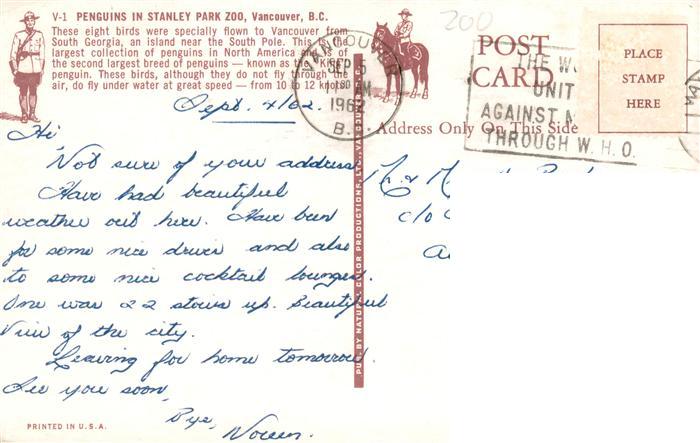 V-1 PENGUINS IN STANLEY PARK ZOO, Vancouver, B.C.
These eight birds were specially flown to Vancouver from
South Georgia, an island near the South Pole. This is the
largest collection of penguins in North America and is of
the second largest breed of penguins — known as the KING
penguin. These birds, although they do not fly through the
air, do fly under water at great speed — from 10 to 12 knots.
200
VANCOUVER
SEP 5
11 AM
1962
B.C.
POST
CARD
THE
UNIT
AGAINST
THROUGH W.H.O.
PLACE
STAMP
HERE
Address Only On This Side
Sept. 4/62.
Hi
Not sure of your address
Have had beautiful
weather out here. Have been
for some nice drives and also
to some nice cocktail lounges.
One was 22 stories up. Beautiful
View of the city.
Leaving for home tomorrow.
See you soon,
Bye,
Noreen.
c/o
PUB. BY NATURAL COLOR PRODUCTIONS LTD. VANCOUVER
PRINTED IN U.S.A.